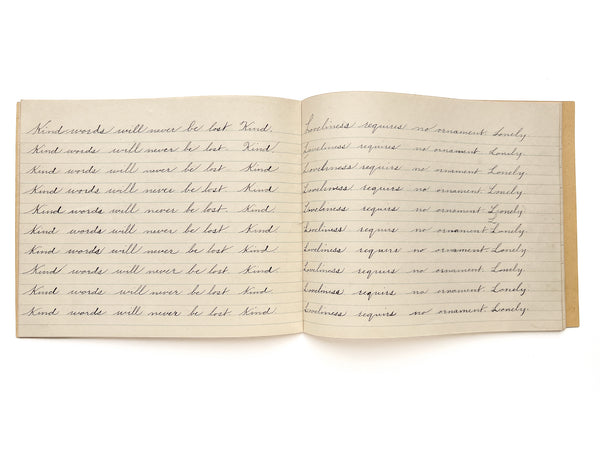 Kind words will never be lost Kind.
Kind words will never be lost. Kind.
Kind words will never be lost. Kind
Kind words will never be lost. Kind
Kind words will never be lost. Kind.
Kind words will never be lost Kind
Kind words will never be lost Kind
Kind words will never be lost. Kind
Kind words will never be lost. Kind
Kind words will never be lost Kind
Loveliness requires no ornament. Lonely
Loveliness requires no ornament. Lonely.
Loveliness requires no ornament. Lonely.
Loveliness requires no ornament. Lonely
Loveliness requirs no ornament. Lonely
Loveliness requirs no ornament. Lonely.
Loveliness requirs no ornament. Lonely.
Loveliness requirs no ornament. Lonely.
Loveliness requirs no ornament. Lonely.
Loveliness requirs no ornament. Lonely.